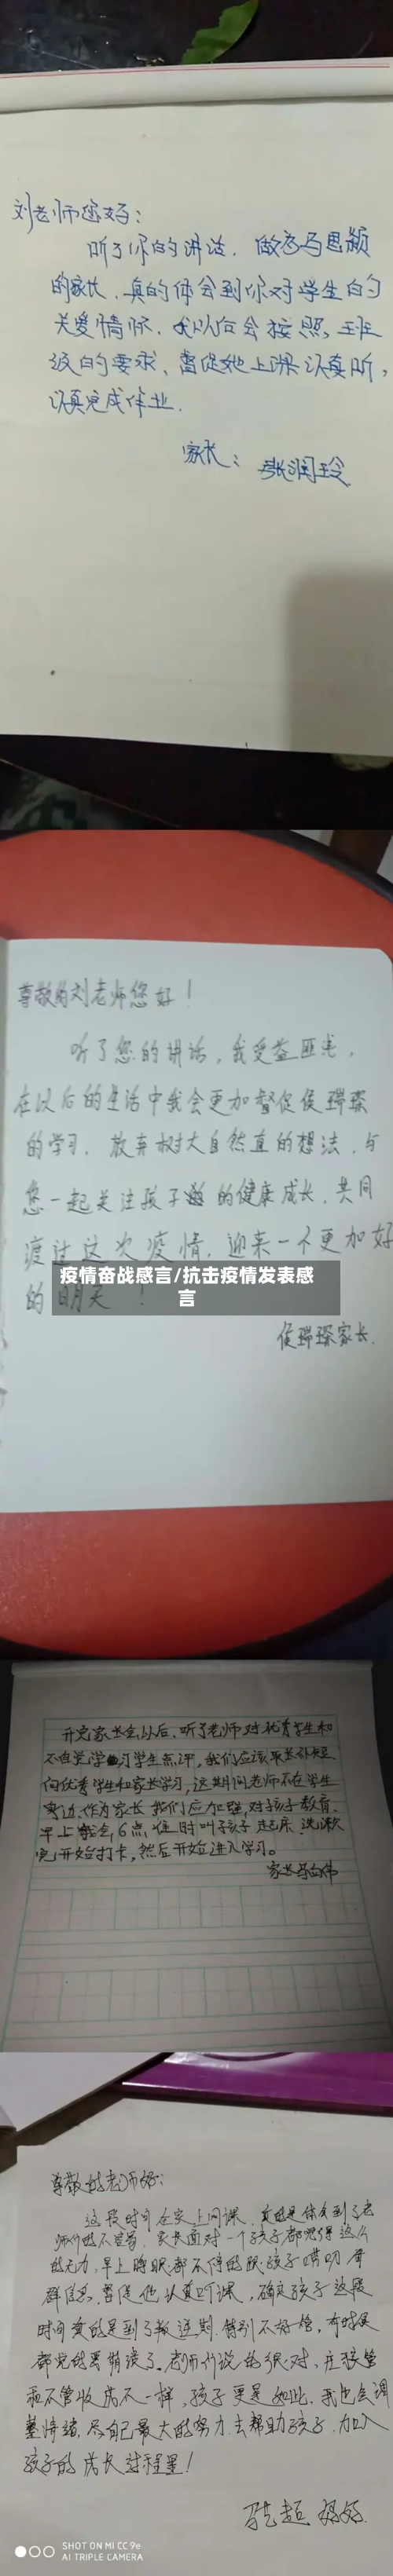 刘老师您好:
听了你的讲话,做为马思颖
的家长,真的体会到你对学生的
关爱情怀,我以后会按照,班
级的要求、督促她上课认真听,
认真完成作业.
家长:张润玲
尊敬的刘老师您好!
听了您的讲话,我受益匪浅,
在以后的生活中我会更加督促侯瑞琛
的学习,放弃树大自然直的想法,与
您一起关注孩子的健康成长,共同
渡过这次疫情,迎来一个更加好
的明天!
疫情奋战感言/抗击疫情发表感
言
侯瑞琛家长.
开完家长会以后,听了老师对优秀学生和
不自觉学习学生点评,我们应该取长补短
向优秀学生和家长学习,这期间老师不在学生
旁边,作为家长我们应加强,对孩子教育.
早上我会,6点准时叫孩子起床,洗漱
完开始打卡,然后开始进入学习。
家长马
尊敬的老师好:
这段时间在家上网课,真的是体会到了老
师们的不容易,家长面对一个孩子都觉得这么
的无力,早上睁眼都不停的跟孩子唠叨,看
群信息,督促他认真听课,确实孩子这段
时间真的是到了叛逆期,特别不好管,有时候
都觉的要崩溃了.老师们说的很对,庄稼管
和不管收成不一样,孩子更是如此.我也会调
整情绪,尽自己最大的努力去帮助孩子,加入
孩子的成长过程里!
超 妈妈.
SHOT ON MI CC 9e
AI TRIPLE CAMERA